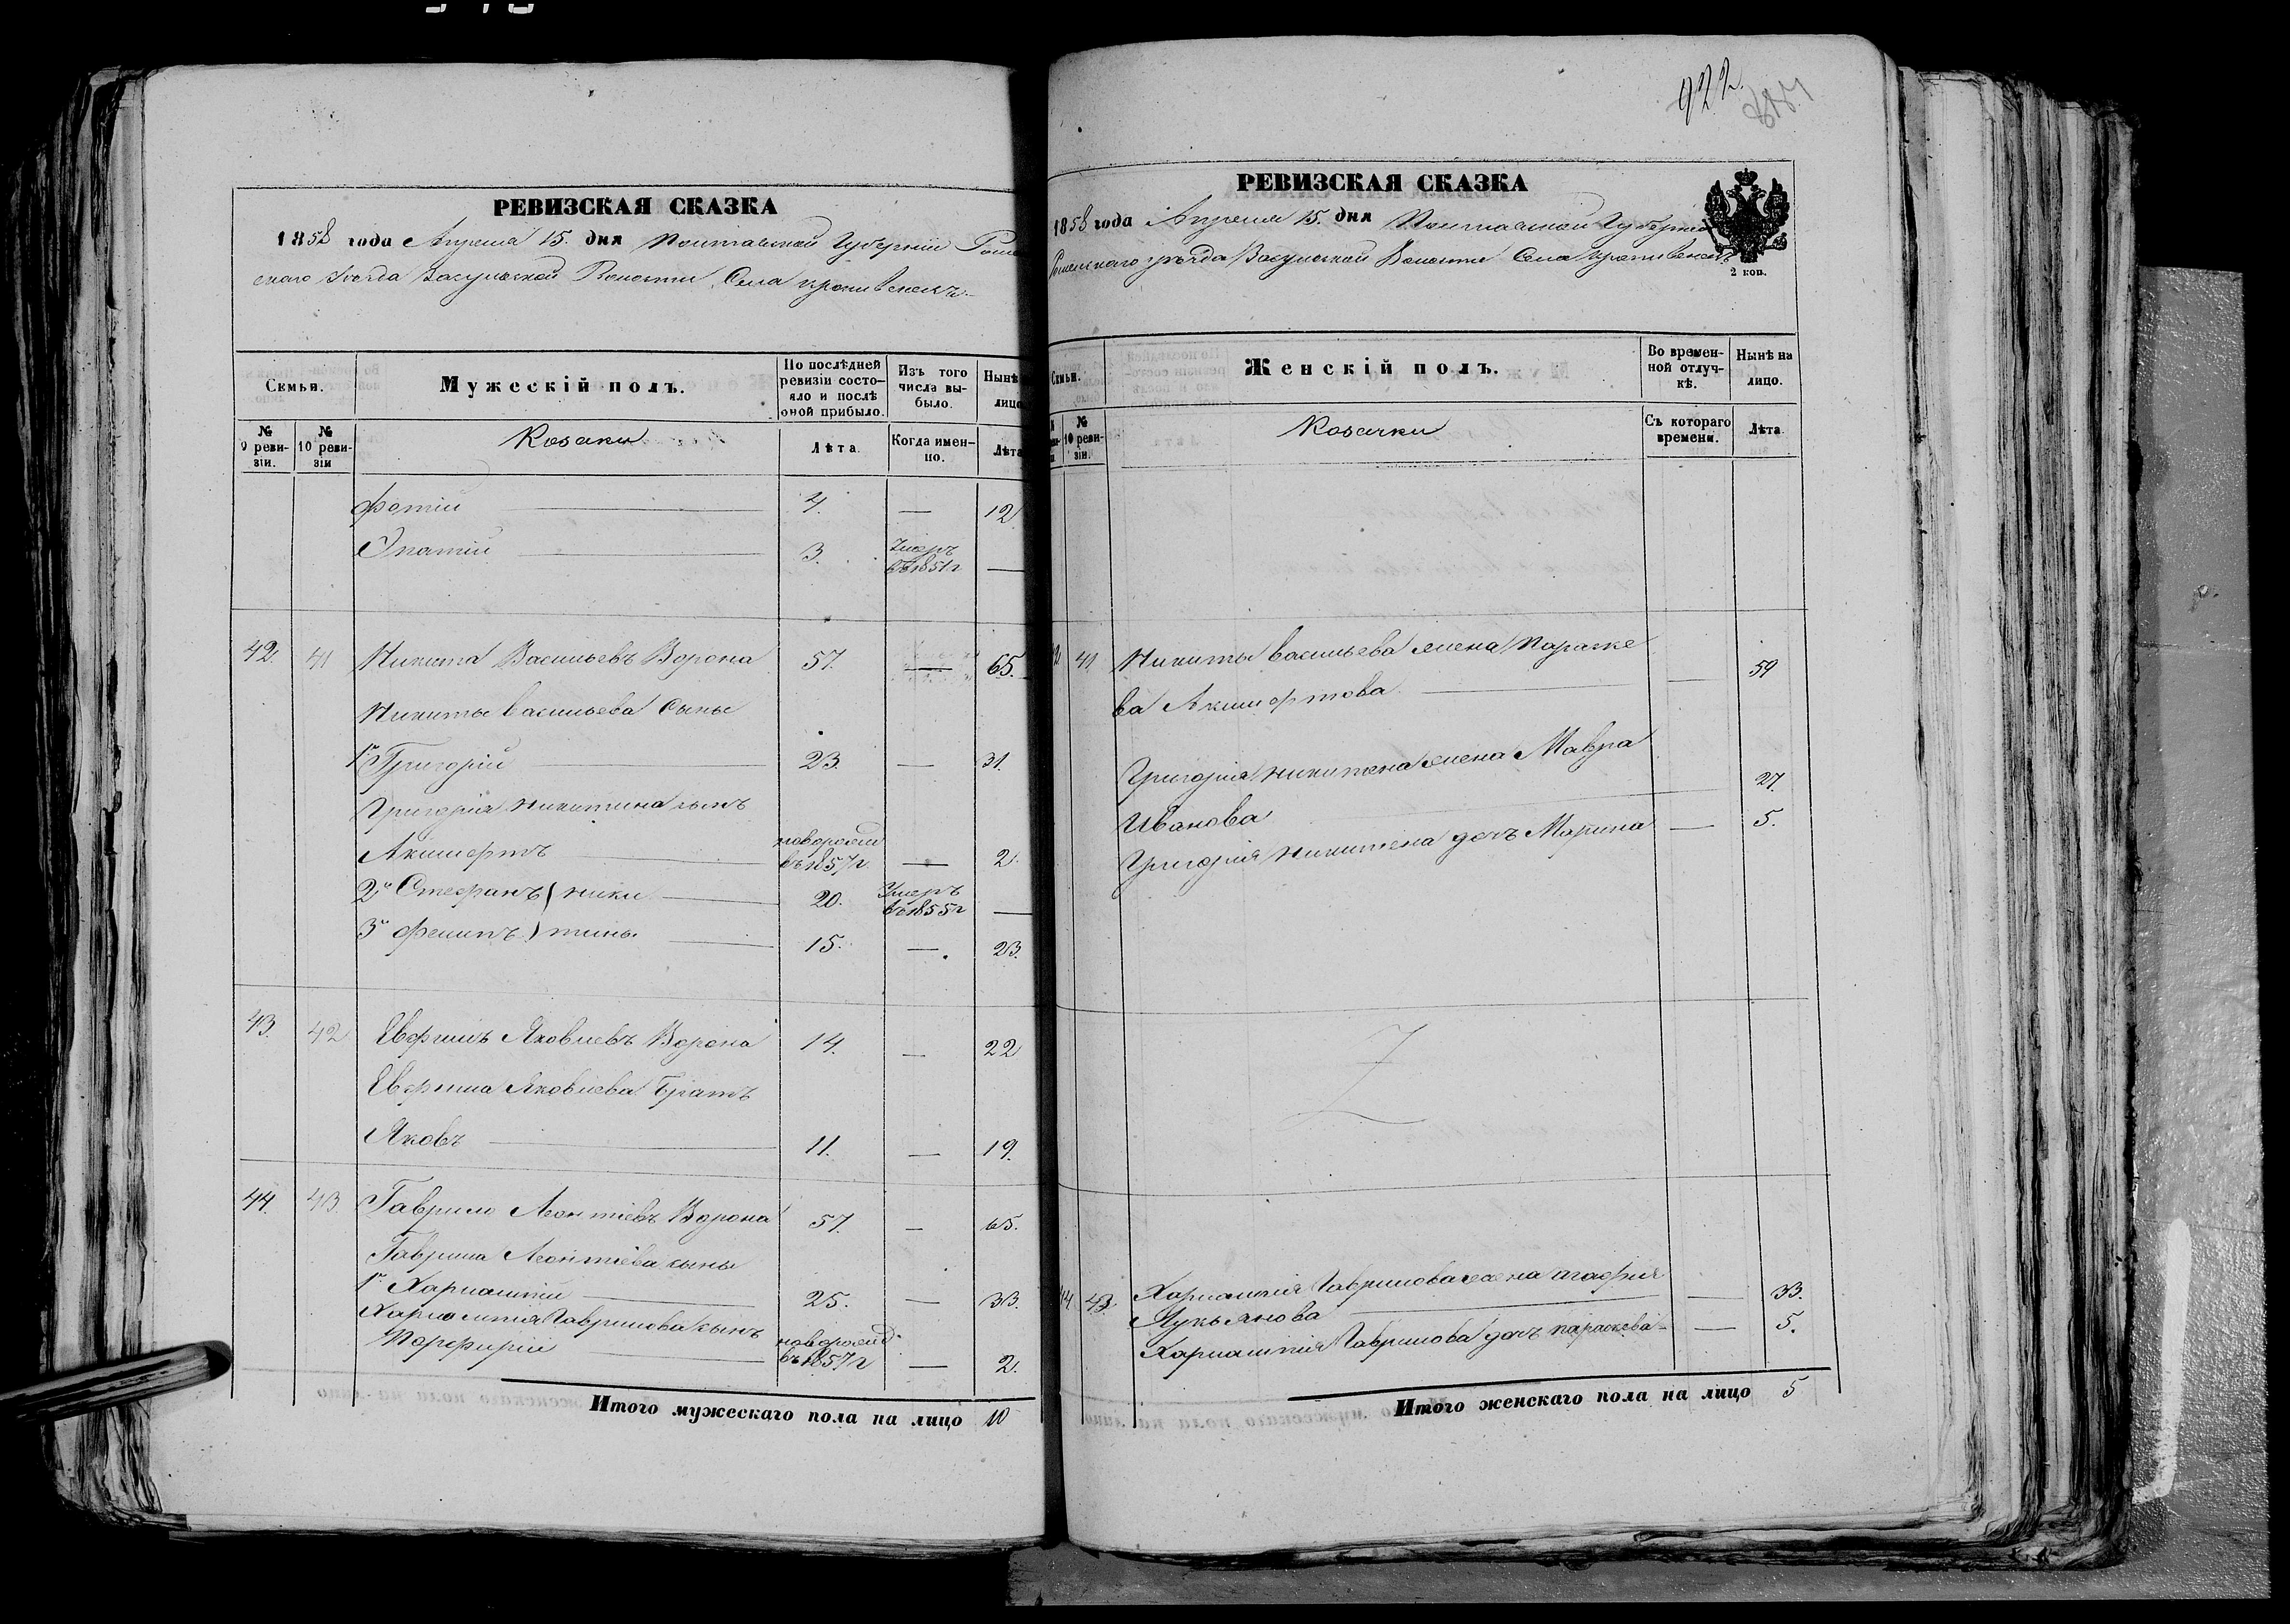 РЕВИЗСКАЯ СКАЗКА
1858 года Апреля 15. дня Полтавской Губерніи Роме
скаго Уезда Засульской Волости Села Кропивенецъ
Семья.
Мужескій полъ.
По послѣдней
ревизіи состо-
яло и послѣ
оной прибыло.
Изъ того
числа вы-
было.
Нынѣ
лицо
№
9 реви-
зіи.
№
10 реви-
зіи
Козаки
Лѣта.
Когда имен-
но.
Лѣта
Фотій 4. — 12
Ипатій 3. Умеръ
въ 1851г —
42. 41 Никита Васильевъ Ворона 57. — 65.
Никиты Васильева Сыны
1й Григорій 23. — 31.
Григорія Никитина сынъ
Акилифтъ новорожд
въ 1857г. — 2.
2й Стефанъ) ники 20. Умеръ
въ 1855г —
3й Филипъ) тины 15. — 23.
43. 42 Евфимъ Яковлевъ Ворона 14. — 22
Евфима Яковлева Братъ
Яковъ 11. — 19.
44. 43. Гаврило Леонтіевъ Ворона 57. — 65.
Гаврила Леонтіева сыны
1й Харлампій 25. — 33.
Харлампія Гаврилова сынъ
Порфирій новорожд.
въ 1857г — 2.
Итого мужескаго пола на лицо 10
922.
РЕВИЗСКАЯ СКАЗКА
1858 года Апреля 15. дня Полтавской Губерніи
Роменскаго уезда Засульской Волости Села Кропивенецъ
2 коп.
Семьи.
Женскій полъ.
Во времен-
ной отлуч-
кѣ.
Нынѣ на
лицо.
№
10 реви-
зіи.
Козачки
Съ котораго
времени.
Лѣта.
2 41 Никиты Васильева жена Параске
ва Акилифтова — 59
Григорія Никитена жена Мавра
Иванова — 27.
Григорія Никитена дочь Марина — 5.
Z
44 43 Харлампія Гаврилова жена Агафия
Лукьянова — 33.
Харлампія Гаврилова дочь Параскева — 5.
Итого женскаго пола на лицо 5